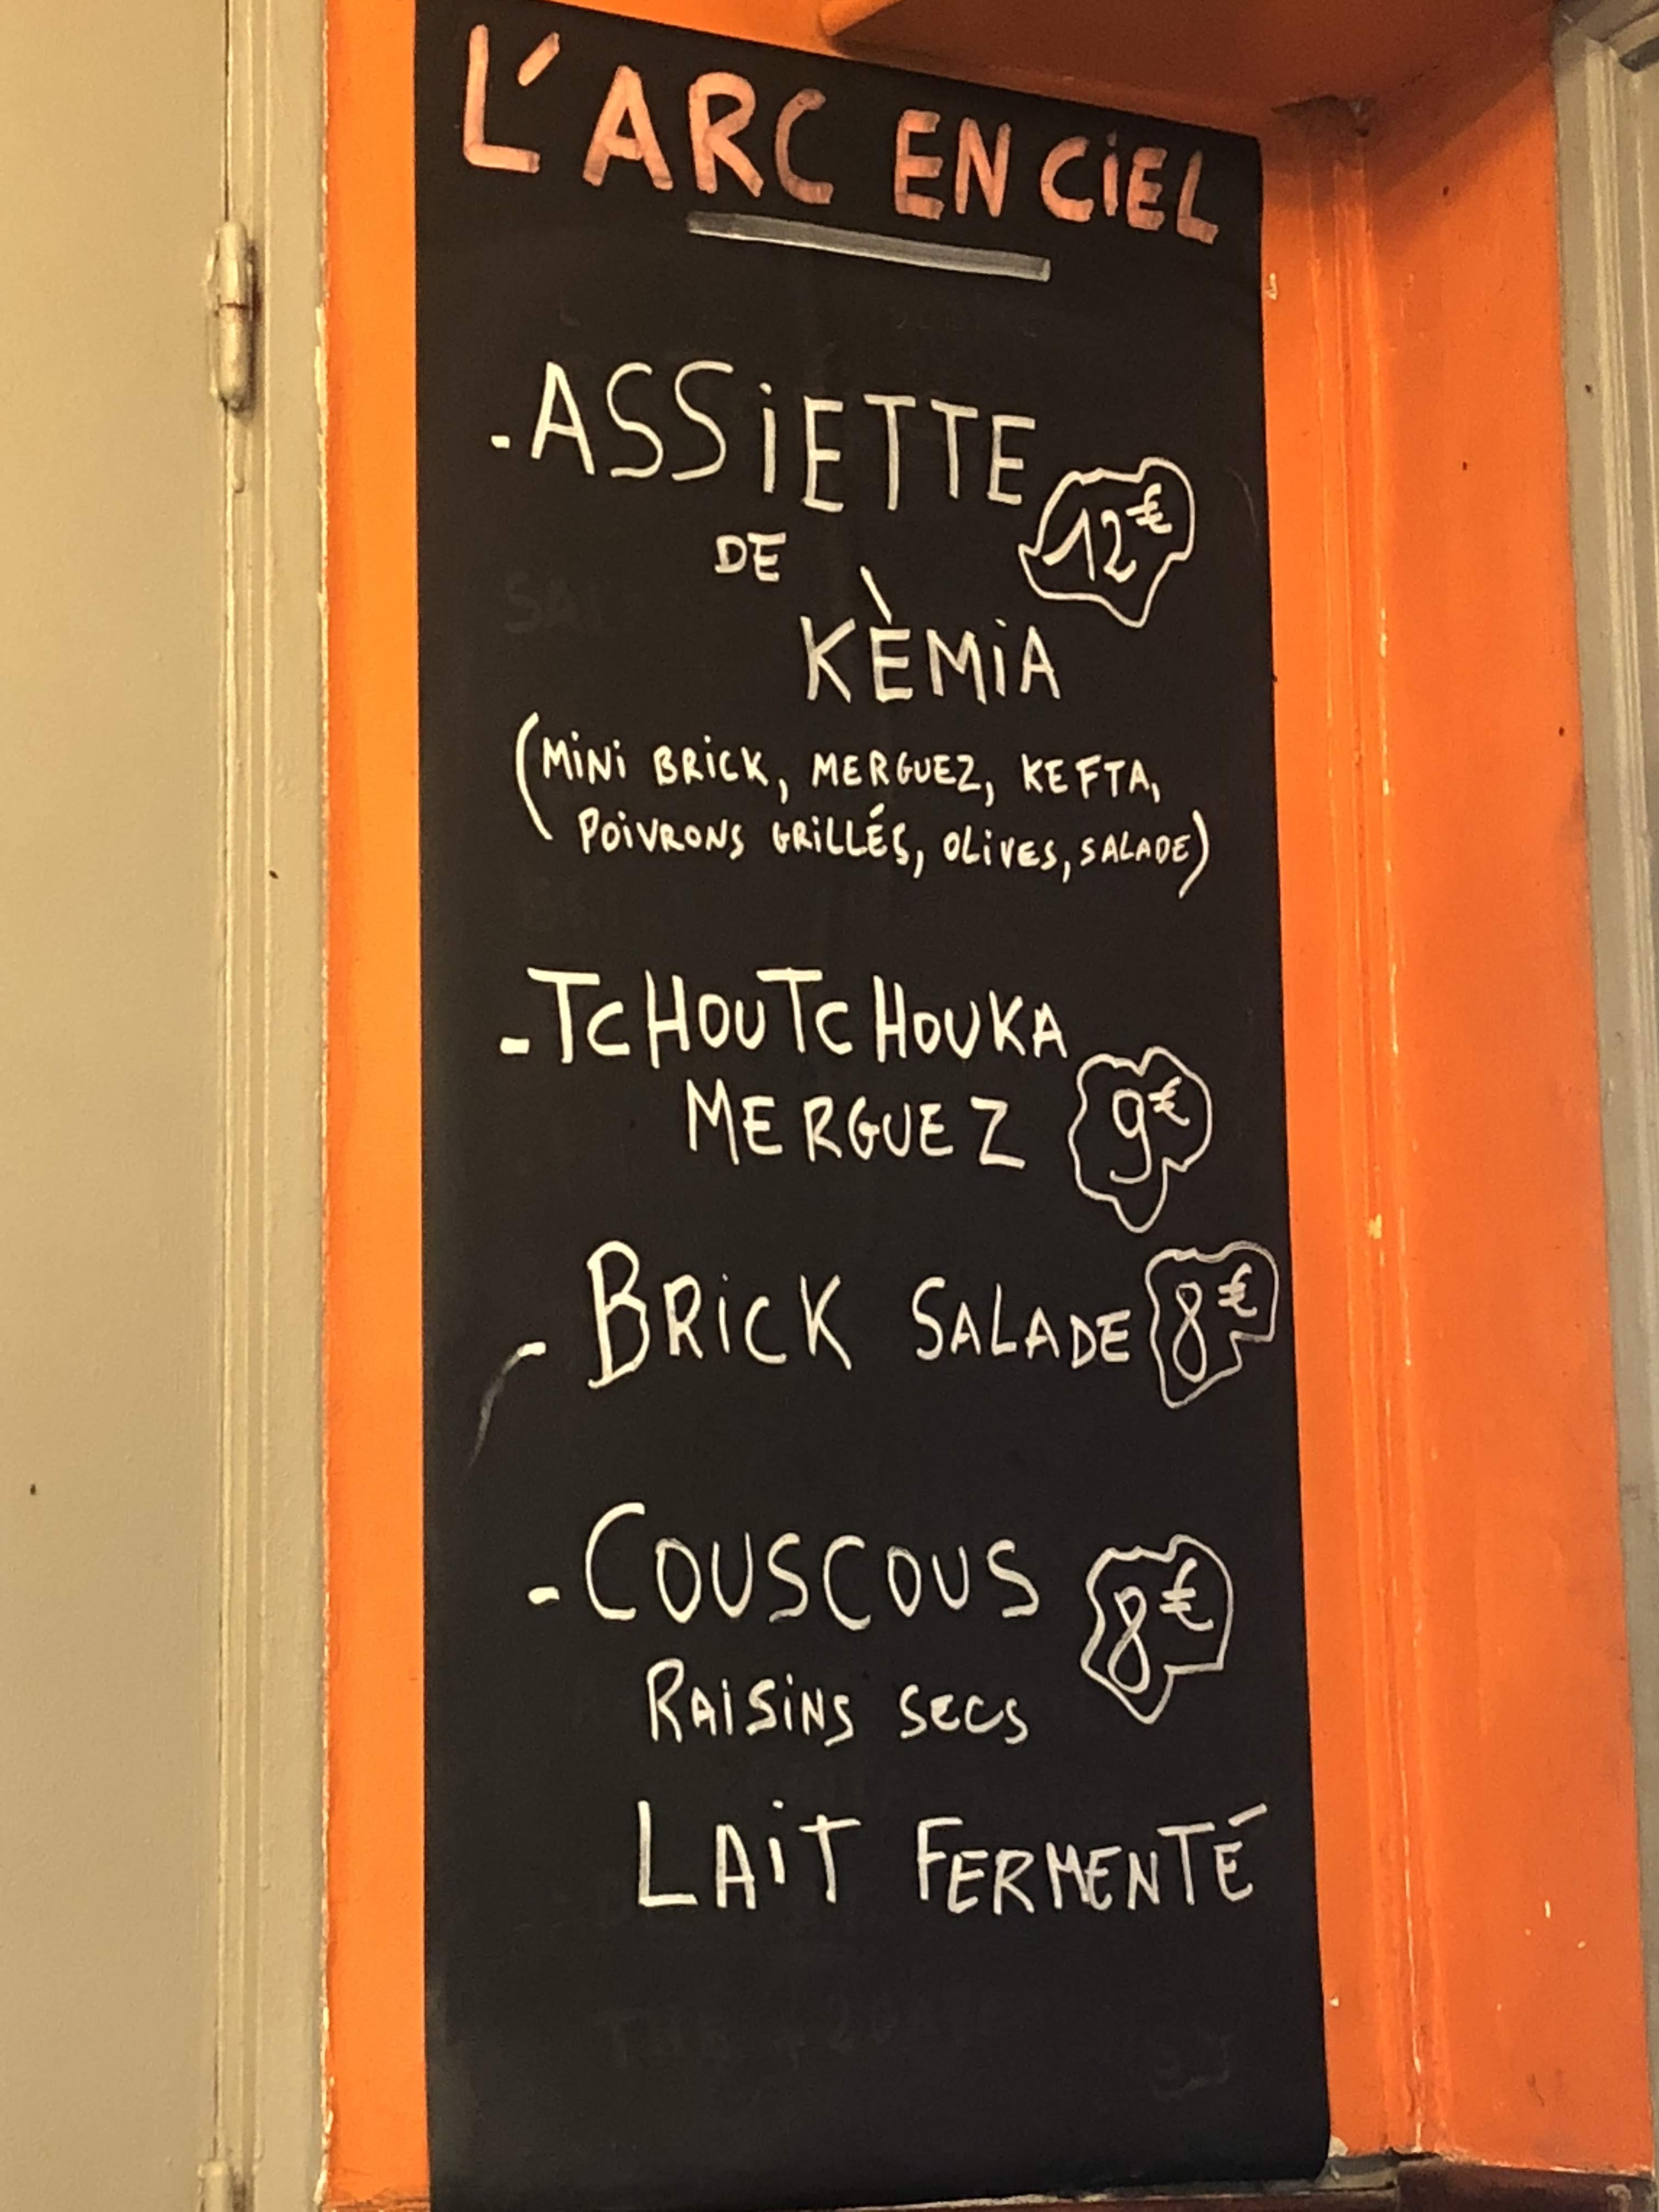 L'ARC EN CiEL
- ASSiETTE
12€
DE
KÈMiA
(MiNi BRiCK, MERGUEZ, KEFTA,
POiVRONS GRiLLÉS, OLiVES, SALADE)
- TCHOUTCHOUKA
MERGUEZ 9€
- BRiCK SALADE 8€
- COUSCOUS 8€
RAiSiNS SECS
LAiT FERMENTÉ